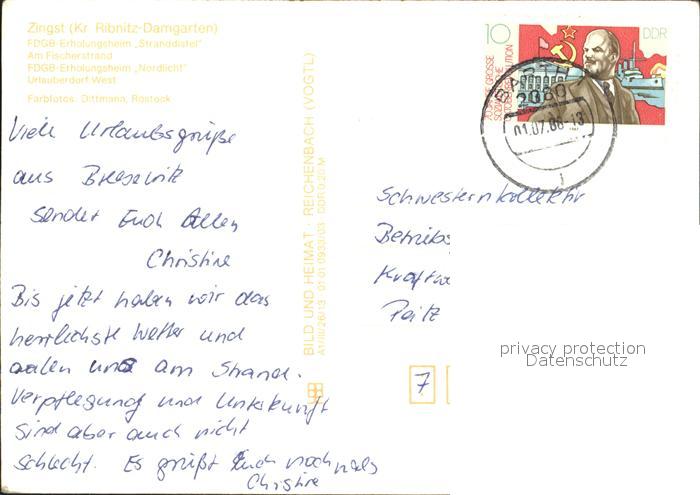 Zingst (Kr. Ribnitz-Damgarten)
FDGB-Erholungsheim „Stranddistel"
Am Fischerstrand
FDGB-Erholungsheim „Nordlicht"
Urlauberdorf West
Farbfotos: Dittmann, Rostock
Viele Urlaubsgrüße
aus Bresewitz
sendet Euch Allen
Christine
Bis jetzt haben wir das
herrlichste Wetter und
aalen uns am Strand.
Verpflegung und Unterkunft
sind aber auch nicht
schlecht. Es grüßt Euch nochmals
Christine
BILD UND HEIMAT · REICHENBACH (VOGTL)
10
DDR
70 JAHRE GROSSE
SOZIALISTISCHE
OKTOBERREVOLUTION
BARTH
2380
01.07.88-13
Schwesternkollektiv
Betriebs
Kraftwe
Peitz
7
privacy protection
Datenschutz